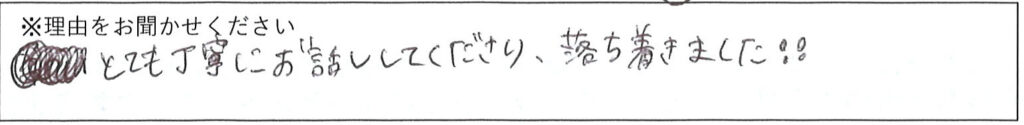 ※理由をお聞かせください
とても丁寧にお話ししてくださり、落ち着きました!!